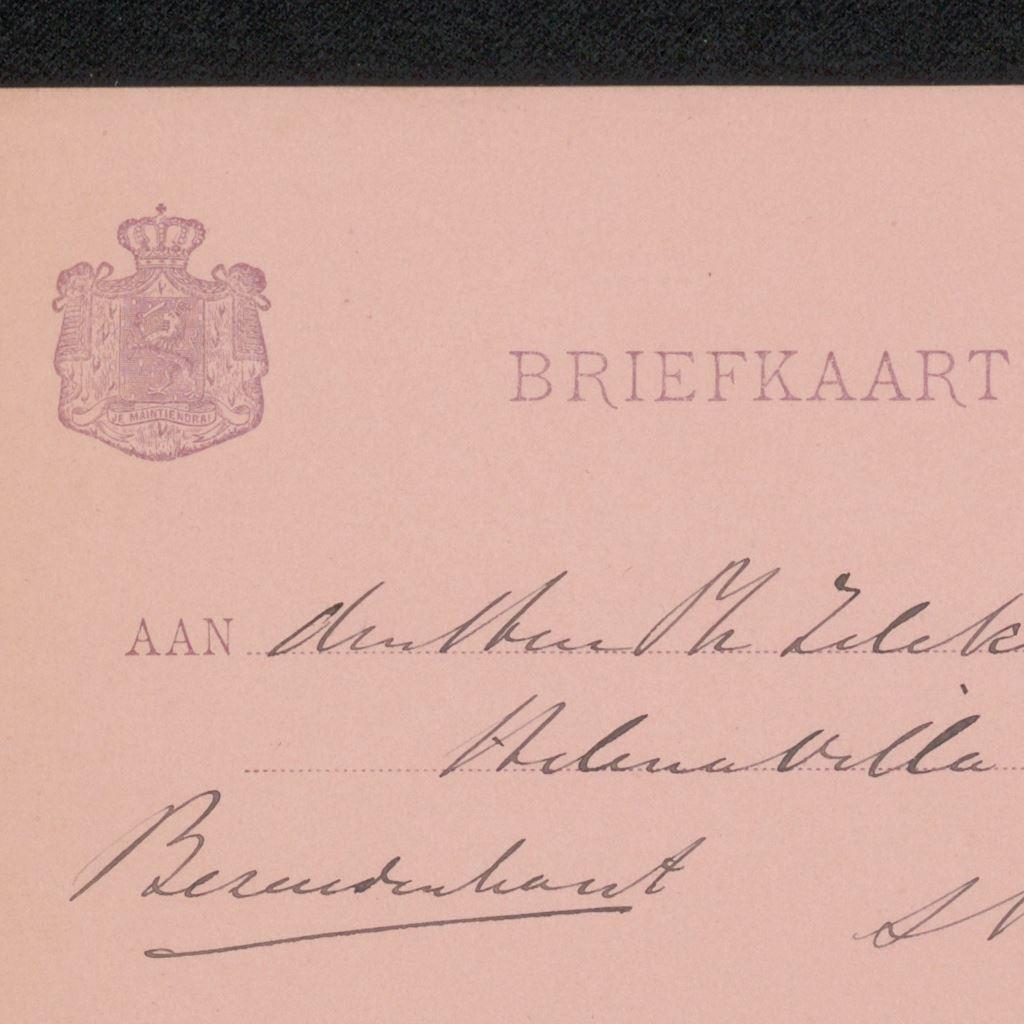 JE MAINTIENDRAI
BRIEFKAART
AAN den Heer Ph Zilck
Helena Villa
Bezuidenhout